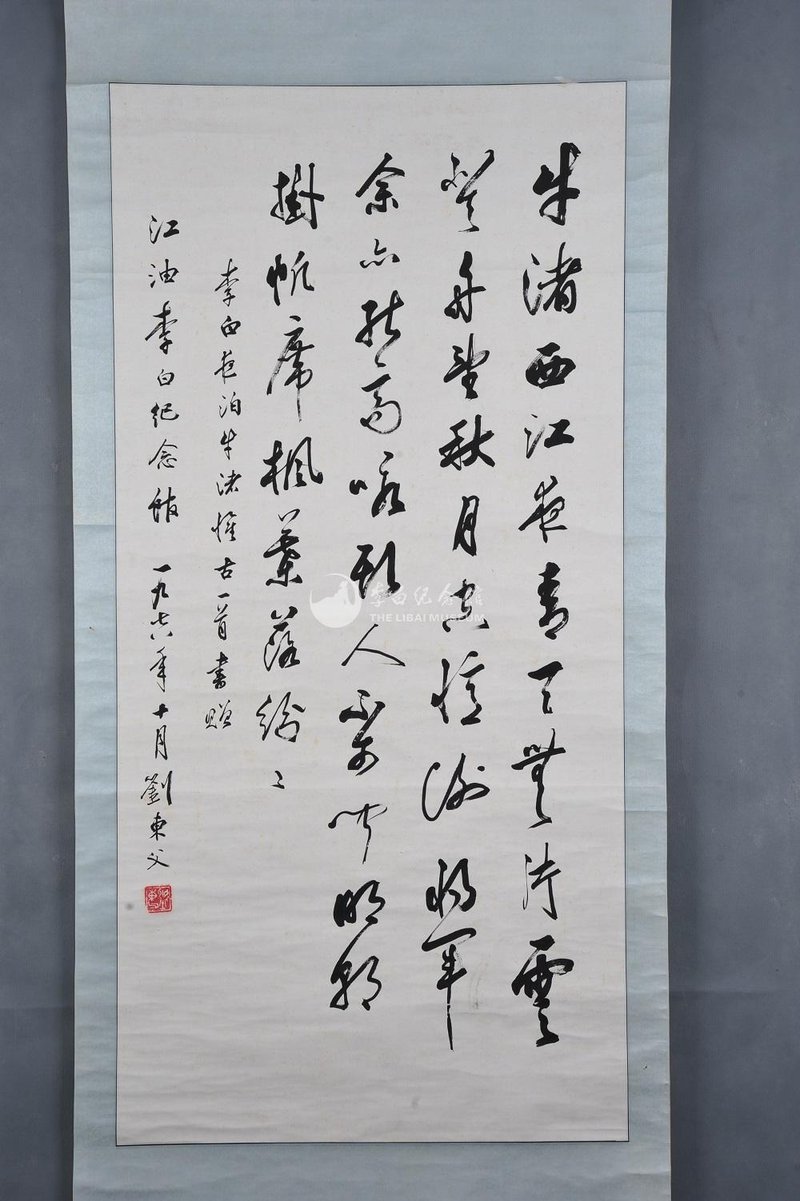 牛渚西江夜青天無片雲
登舟望秋月空憶謝將軍
余亦能高咏斯人不可聞明朝
掛帆席楓葉落紛〻
李白夜泊牛渚懷古一首書贈
江油李白紀念館 一九七六年十月 劉東父
李白纪念馆
THE LIBAI MUSEUM